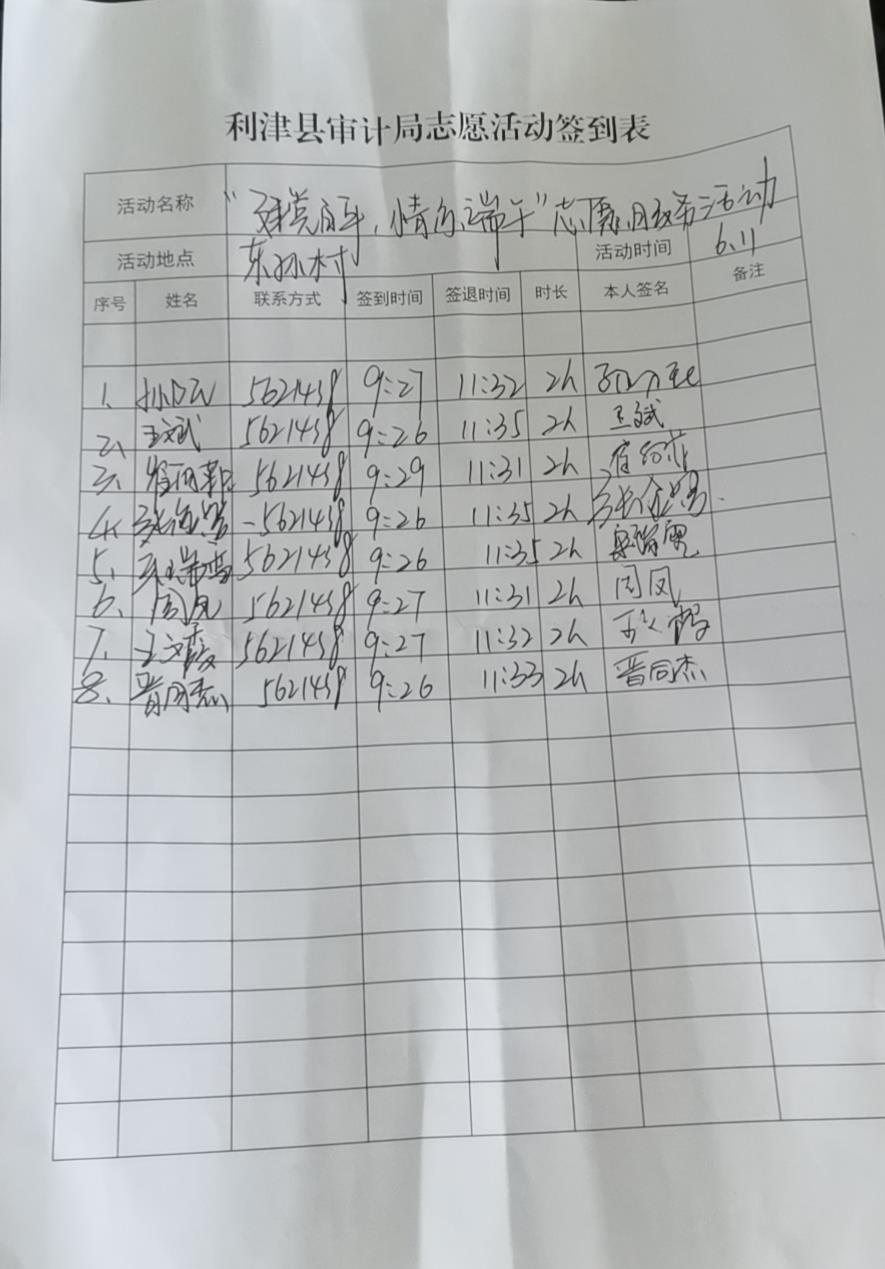 利津县审计局志愿活动签到表
活动名称 "建党百年,情的端午"志愿服务活动
活动地点 东孙村 活动时间 6.11
序号 姓名 联系方式 签到时间 签退时间 时长 本人签名 备注
1、 5621438 9:27 11:32 2h
2、 王斌 5621438 9:26 11:35 2h 王斌
3、 5621438 9:29 11:31 2h
4、 5621438 9:26 11:35 2h
5、 5621438 9:26 11:35 2h
6、 周凤 5621438 9:27 11:31 2h 周凤
7、 王文霞 5621438 9:27 11:32 2h
8、 晋同杰 5621438 9:26 11:33 2h 晋同杰